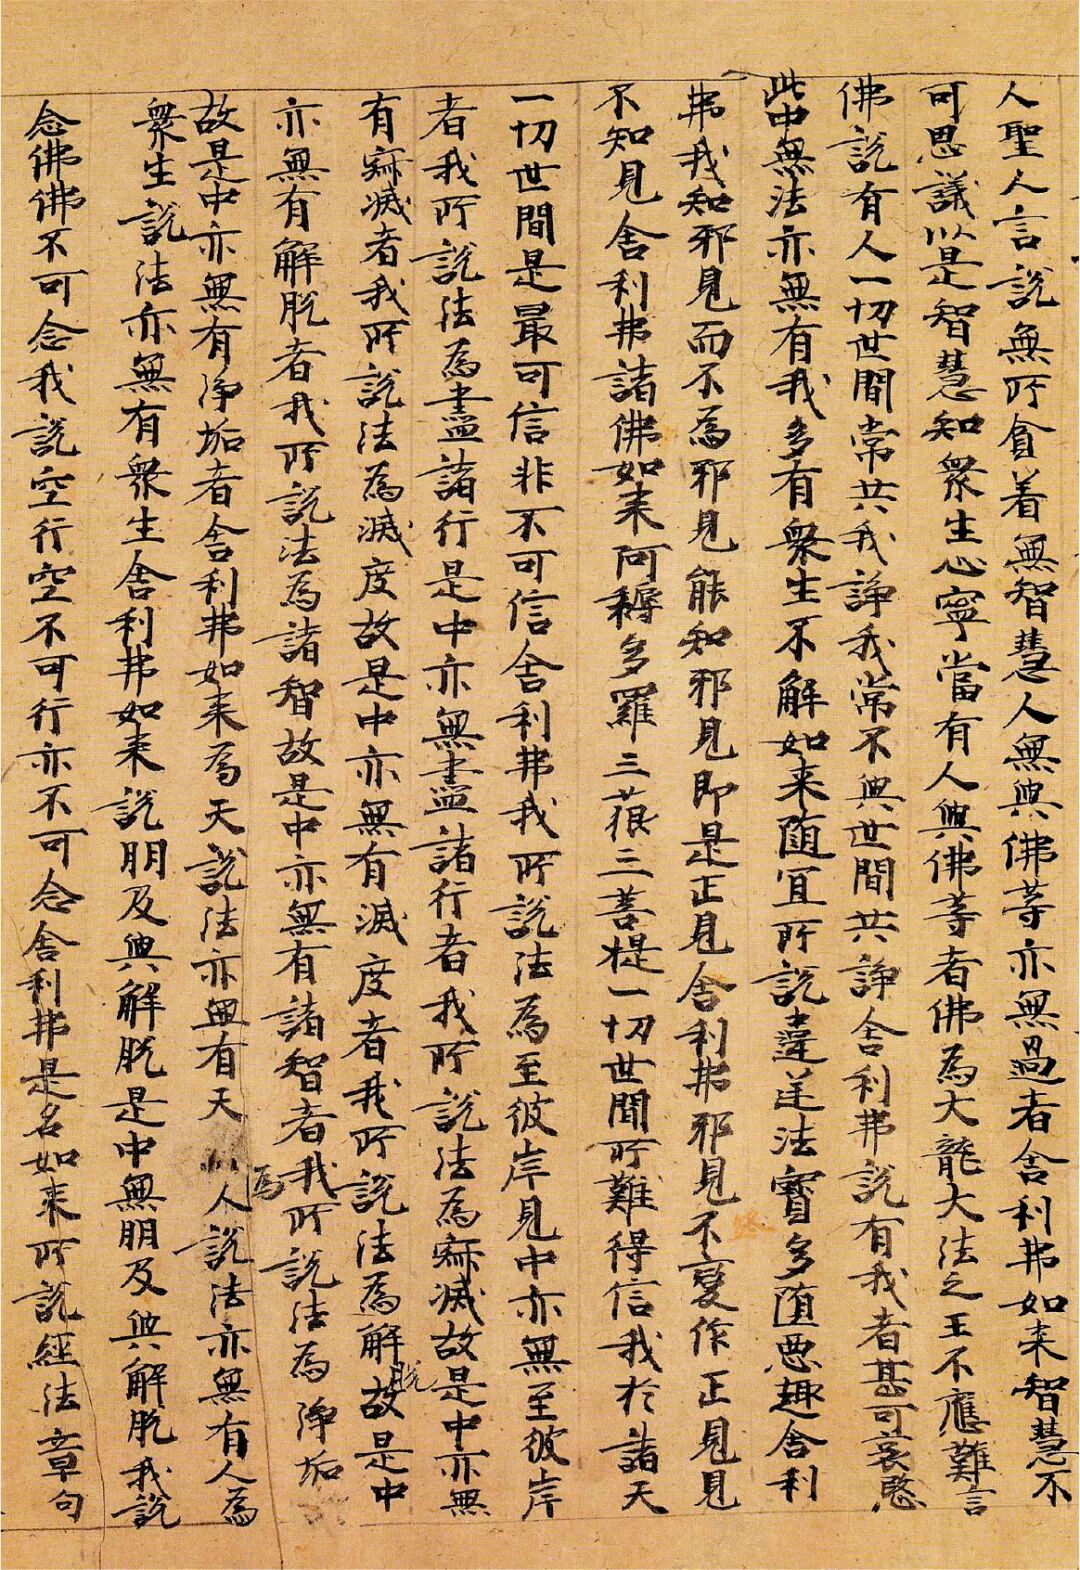 人聖人言說無所貪着無智慧人無與佛等亦無過者舍利弗如来智慧不
可思議以是智慧知衆生心寧當有人與佛等者佛為大龍大法之王不應難言
佛說有人一切世間常共我諍我常不與世間共諍舍利弗說有我者甚可哀愍
此中無法亦無有我多有衆生不解如来随宜所說違逆法寶多堕惡趣舍利
弗我知邪見而不為邪見能知邪見即是正見舍利弗邪見不變作正見見
不知見舍利弗諸佛如来阿耨多羅三藐三菩提一切世間所難得信我於諸天
一切世間是最可信非不可信舍利弗我所說法為至彼岸見中亦無至彼岸
者我所說法為盡諸行是中亦無盡諸行者我所說法為寂滅故是中亦無
有寂滅者我所說法為滅度故是中亦無有滅度者我所說法為解脫故是中
亦無有解脫者我所說法為諸智故是中亦無有諸智者我所說法為淨垢
故是中亦無有淨垢者舍利弗如来為天說法亦無有天為人說法亦無有人為
衆生說法亦無有衆生舍利弗如来說明及與解脫是中無明及與解脫我說
念佛佛不可念我說空行空不可行亦不可念舍利弗是名如来所說經法章句